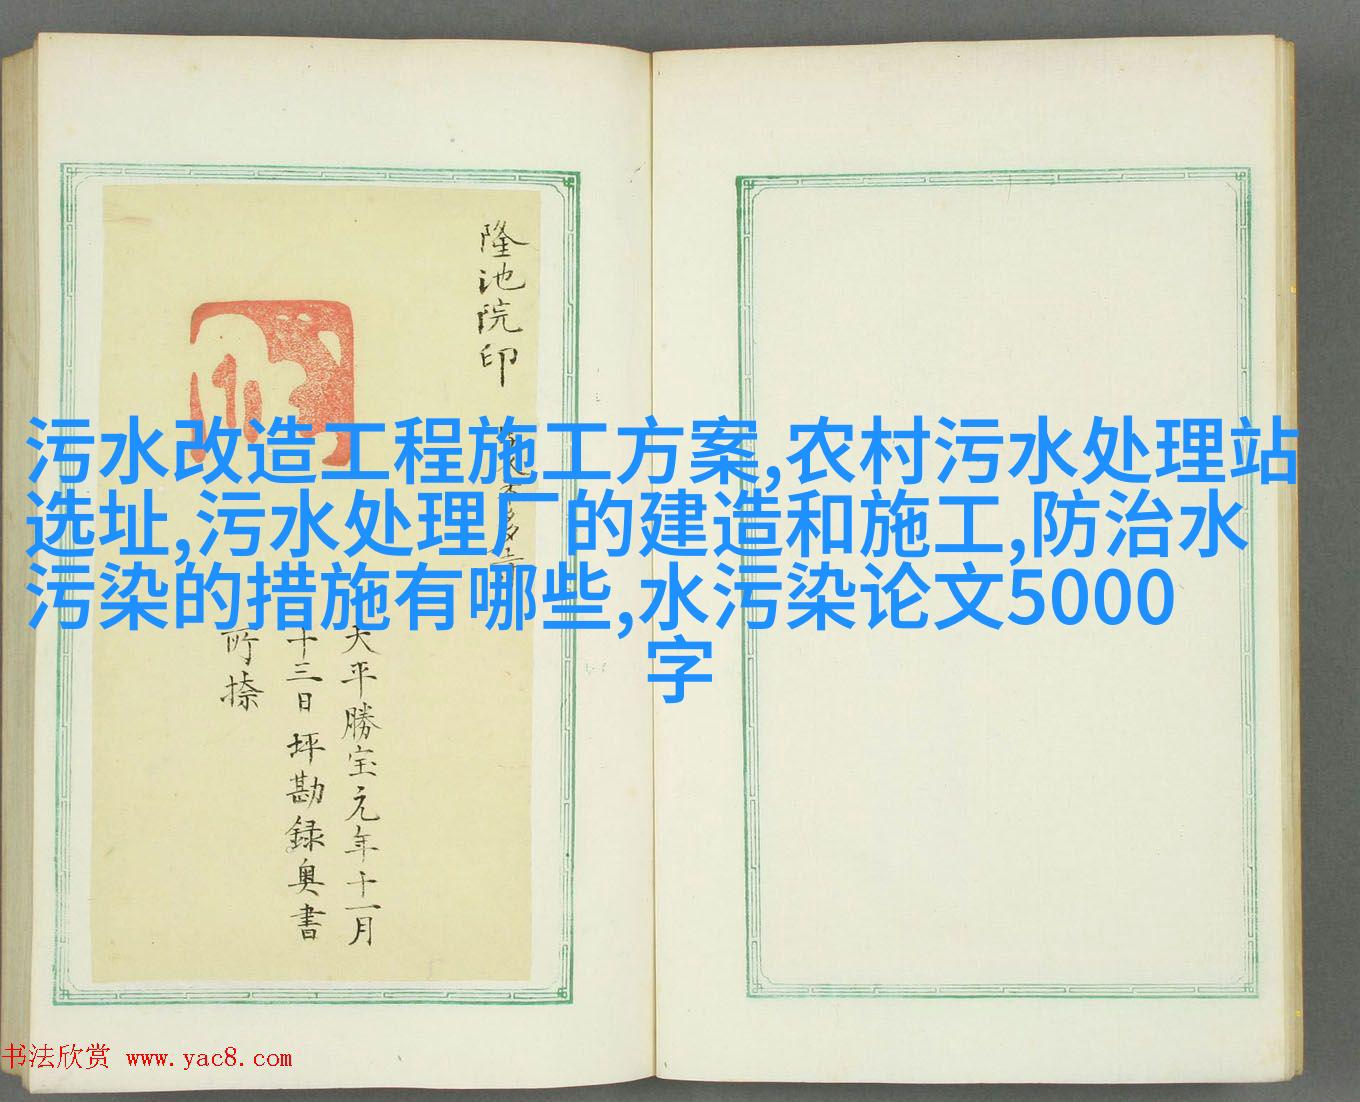 污水改造工程施工方案,农村污水处理站
选址,污水处理厂的建造和施工,防治水
污染的措施有哪些,水污染论文5000
字
隆池院印
大平勝宝元年十一月
十三日坪勘録奥書
所捺
书法欣赏 www.yac8.com